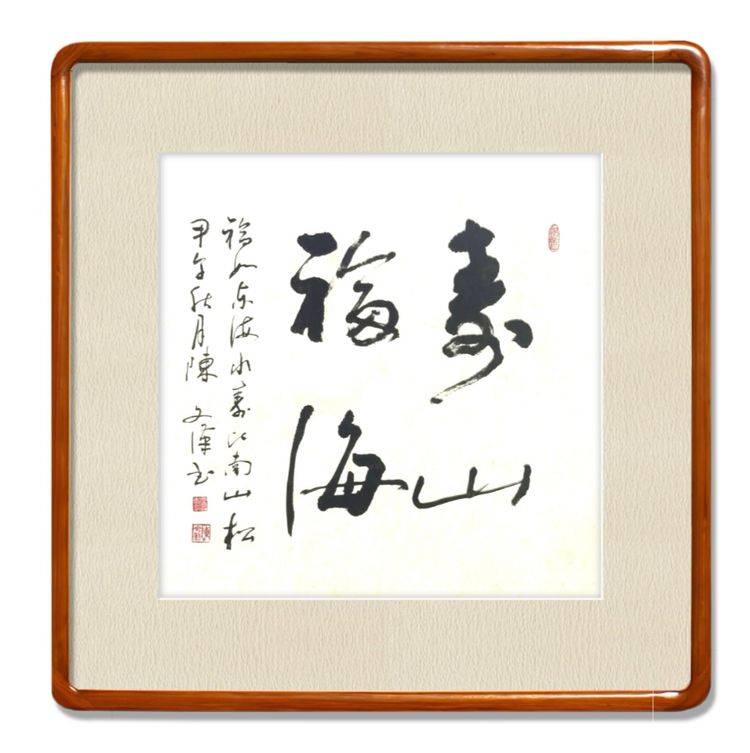 寿山
福海
福如东海水寿比南山松
甲午秋月陳文澤书